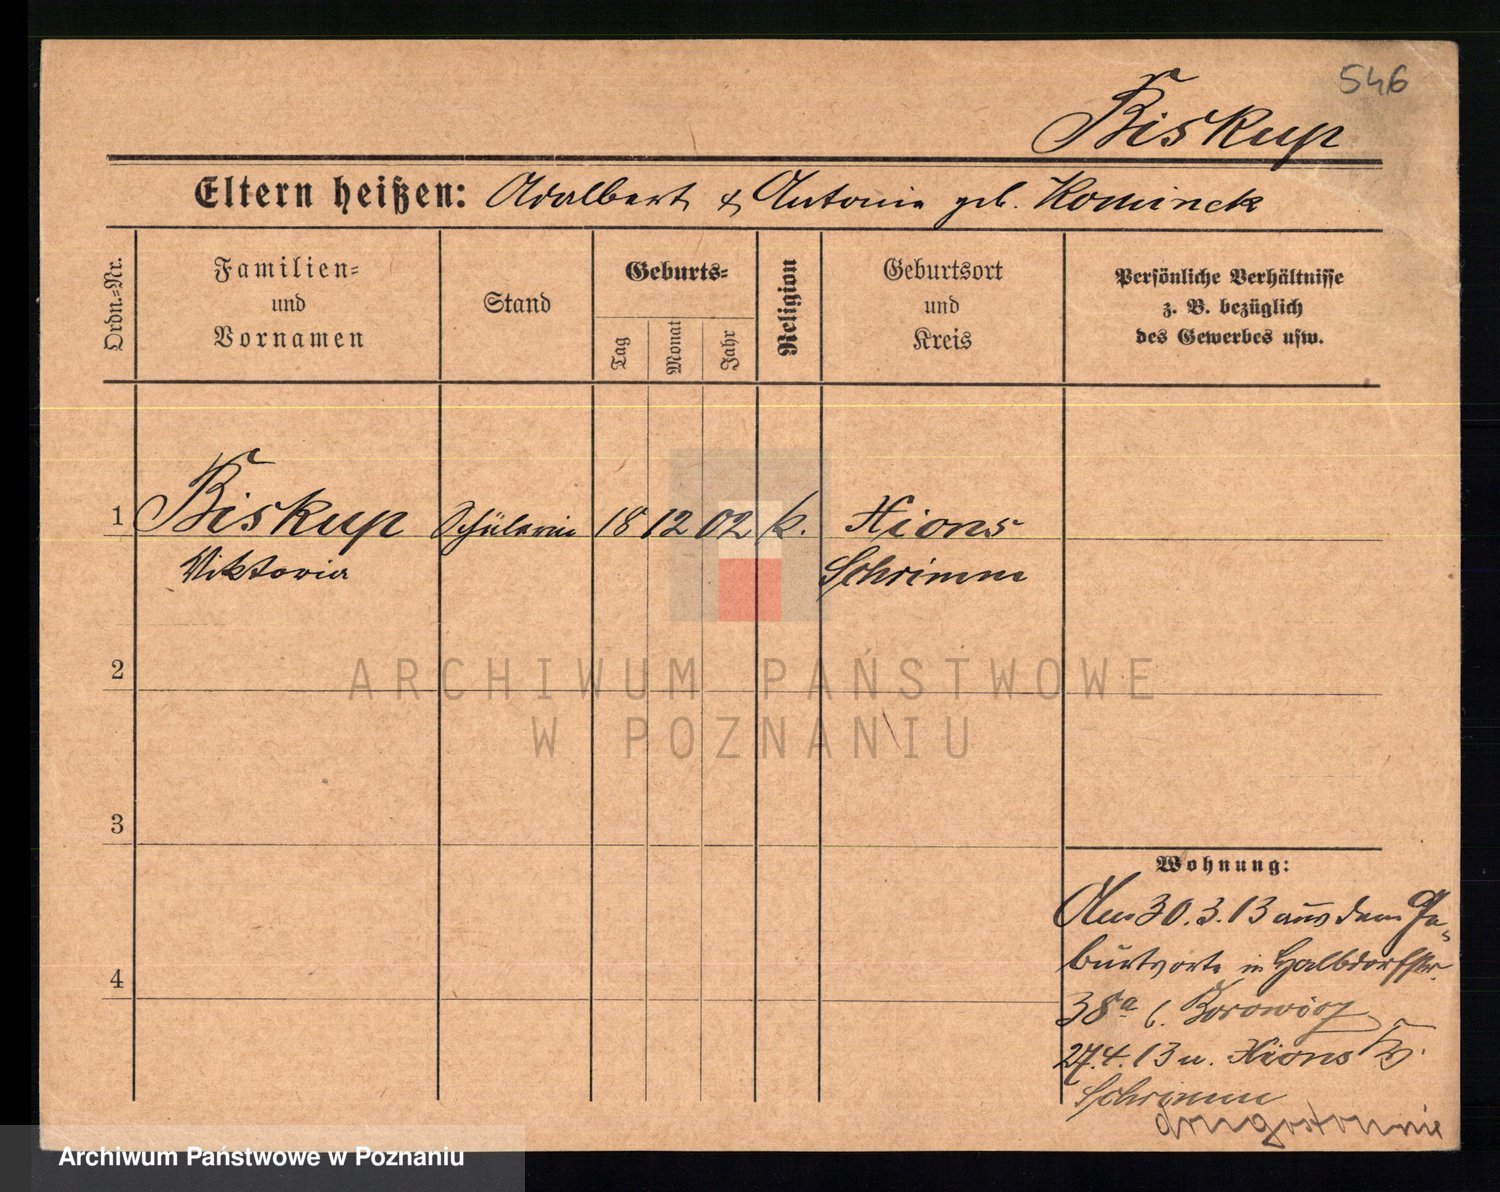 546
Biskup
Eltern heißen: Adalbert & Antonie geb. Kominek
Ordn.=Nr.
Familien=
und
Vornamen
Stand
Geburts=
Tag
Monat
Jahr
Religion
Geburtsort
und
Kreis
Persönliche Verhältnisse
z. B. bezüglich
des Gewerbes usw.
1 Biskup Schülerin 18 12 02 k. Xions
Viktoria Schrimm
2
3
4
Wohnung:
Am 30.3.13 aus dem Ge-
burtsorte in Halbdorfstr.
38a b. Borowicz
27.4.13 n. Xions Kr.
Schrimm
ARCHIWUM PAŃSTWOWE
W POZNANIU
Archiwum Państwowe w Poznaniu